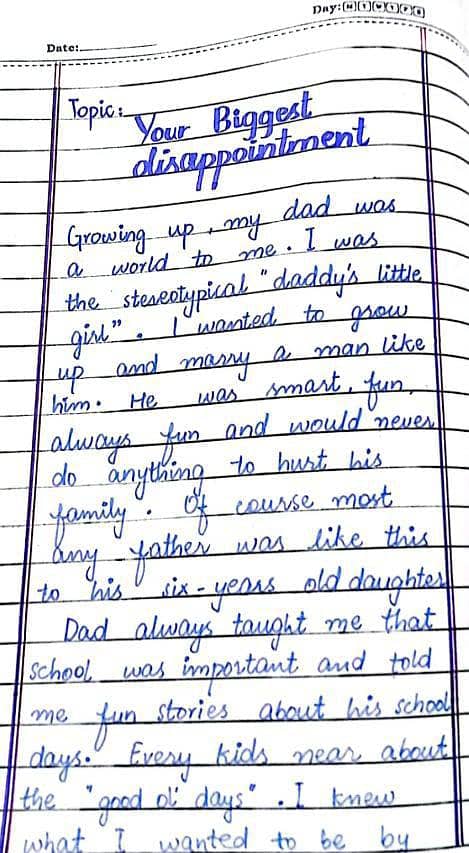 Day: M T W T F S
Date:
Topic: Your Biggest
disappointment
Growing up, my dad was
a world to me. I was
the stereotypical "daddy's little
girl". I wanted to grow
up and marry a man like
him. He was smart, fun,
always fun and would never
do anything to hurt his
family. Of course most
any father was like this
to his six-years old daughter
Dad always taught me that
school was important and told
me fun stories about his school
days. Every kids near about
the "good ol' days". I knew
what I wanted to be by